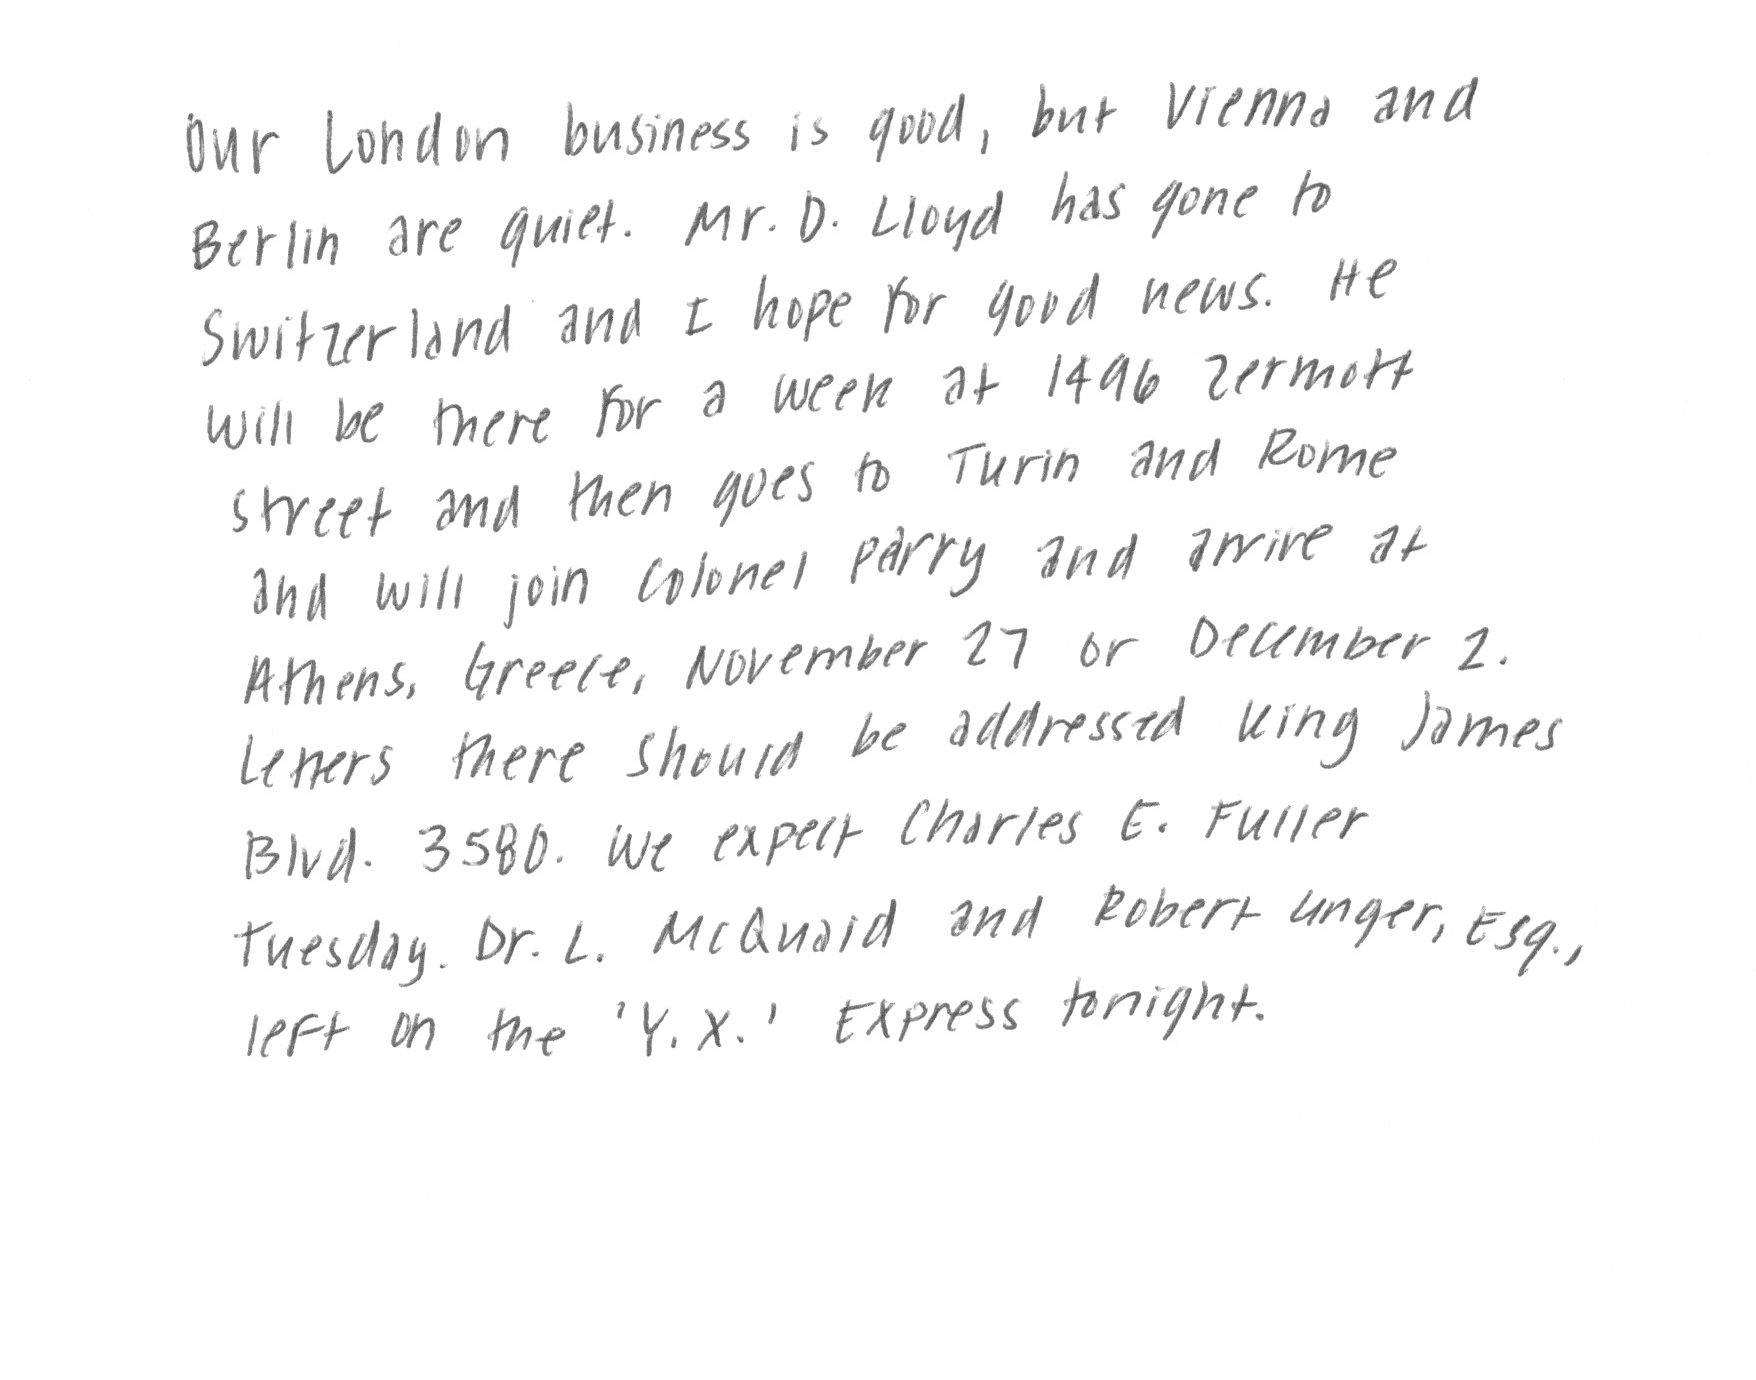 Our London business is good, but Vienna and
Berlin are quiet. Mr. D. Lloyd has gone to
Switzerland and I hope for good news. He
will be there for a week at 1496 Zermott
street and then goes to Turin and Rome
and will join Colonel Parry and arrive at
Athens, Greece, November 27 or December 2.
Letters there should be addressed King James
Blvd. 3580. We expect Charles E. Fuller
Tuesday. Dr. L. McQuaid and Robert Unger, Esq.,
left on the 'Y.X.' Express tonight.